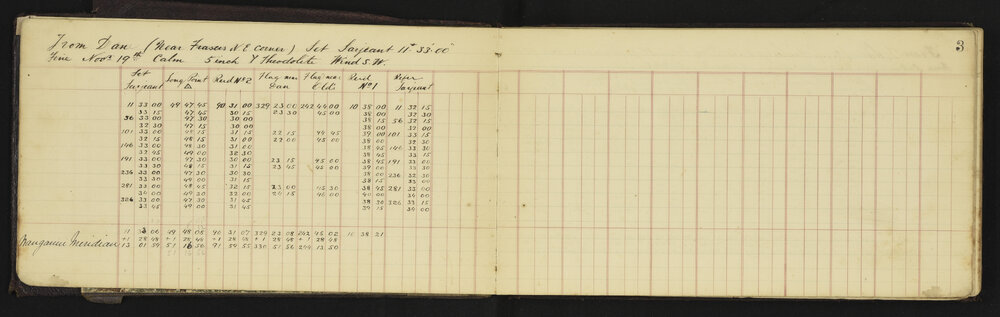 3
From Dan (Near Frasers N.E corner) Set Sargeant 11° 33' 00"
Fine Novr 19th Calm 5 inch Y Theodolite Wind S.W.
Set Sargeant Long Point Δ Reid No 2 Flag near Dan Flag near Reid No 1 Refer Sargeant
11 33 00 49 47 45 90 31 00 329 23 00 242 44 00 10 38 00 11 32 15
33 15 47 45 30 15 23 30 45 00 38 00 32 30
56 33 00 47 30 30 00 38 15 56 32 15
32 30 47 15 30 00 38 00 32 00
101 33 00 48 15 31 15 22 15 44 45 39 00 101 33 15
32 15 48 15 31 00 22 00 45 00 38 00 32 30
146 33 00 48 30 31 00 38 45 146 33 30
32 45 49 00 32 30 38 45 33 15
191 33 00 47 30 30 00 23 15 45 00 38 45 191 33 00
33 30 48 15 31 15 23 45 45 00 39 00 33 30
236 33 00 47 30 30 00 38 00 236 32 30
33 30 49 00 30 30 38 15 33 00
281 33 00 48 45 32 15 23 00 45 30 38 45 281 33 00
34 00 49 30 32 00 24 15 46 00 40 00 34 00
326 33 00 47 30 31 45 38 30 326 33 15
33 45 49 00 31 45 39 15 34 00
11 33 06 49 48 05 90 31 07 329 23 08 242 45 02 10 38 21
Wanganui Meridian +1 28 48 +1 28 48 +1 28 48 +1 28 48 +1 28 48
13 01 54 51 16 56 91 59 55 330 51 56 244 13 50